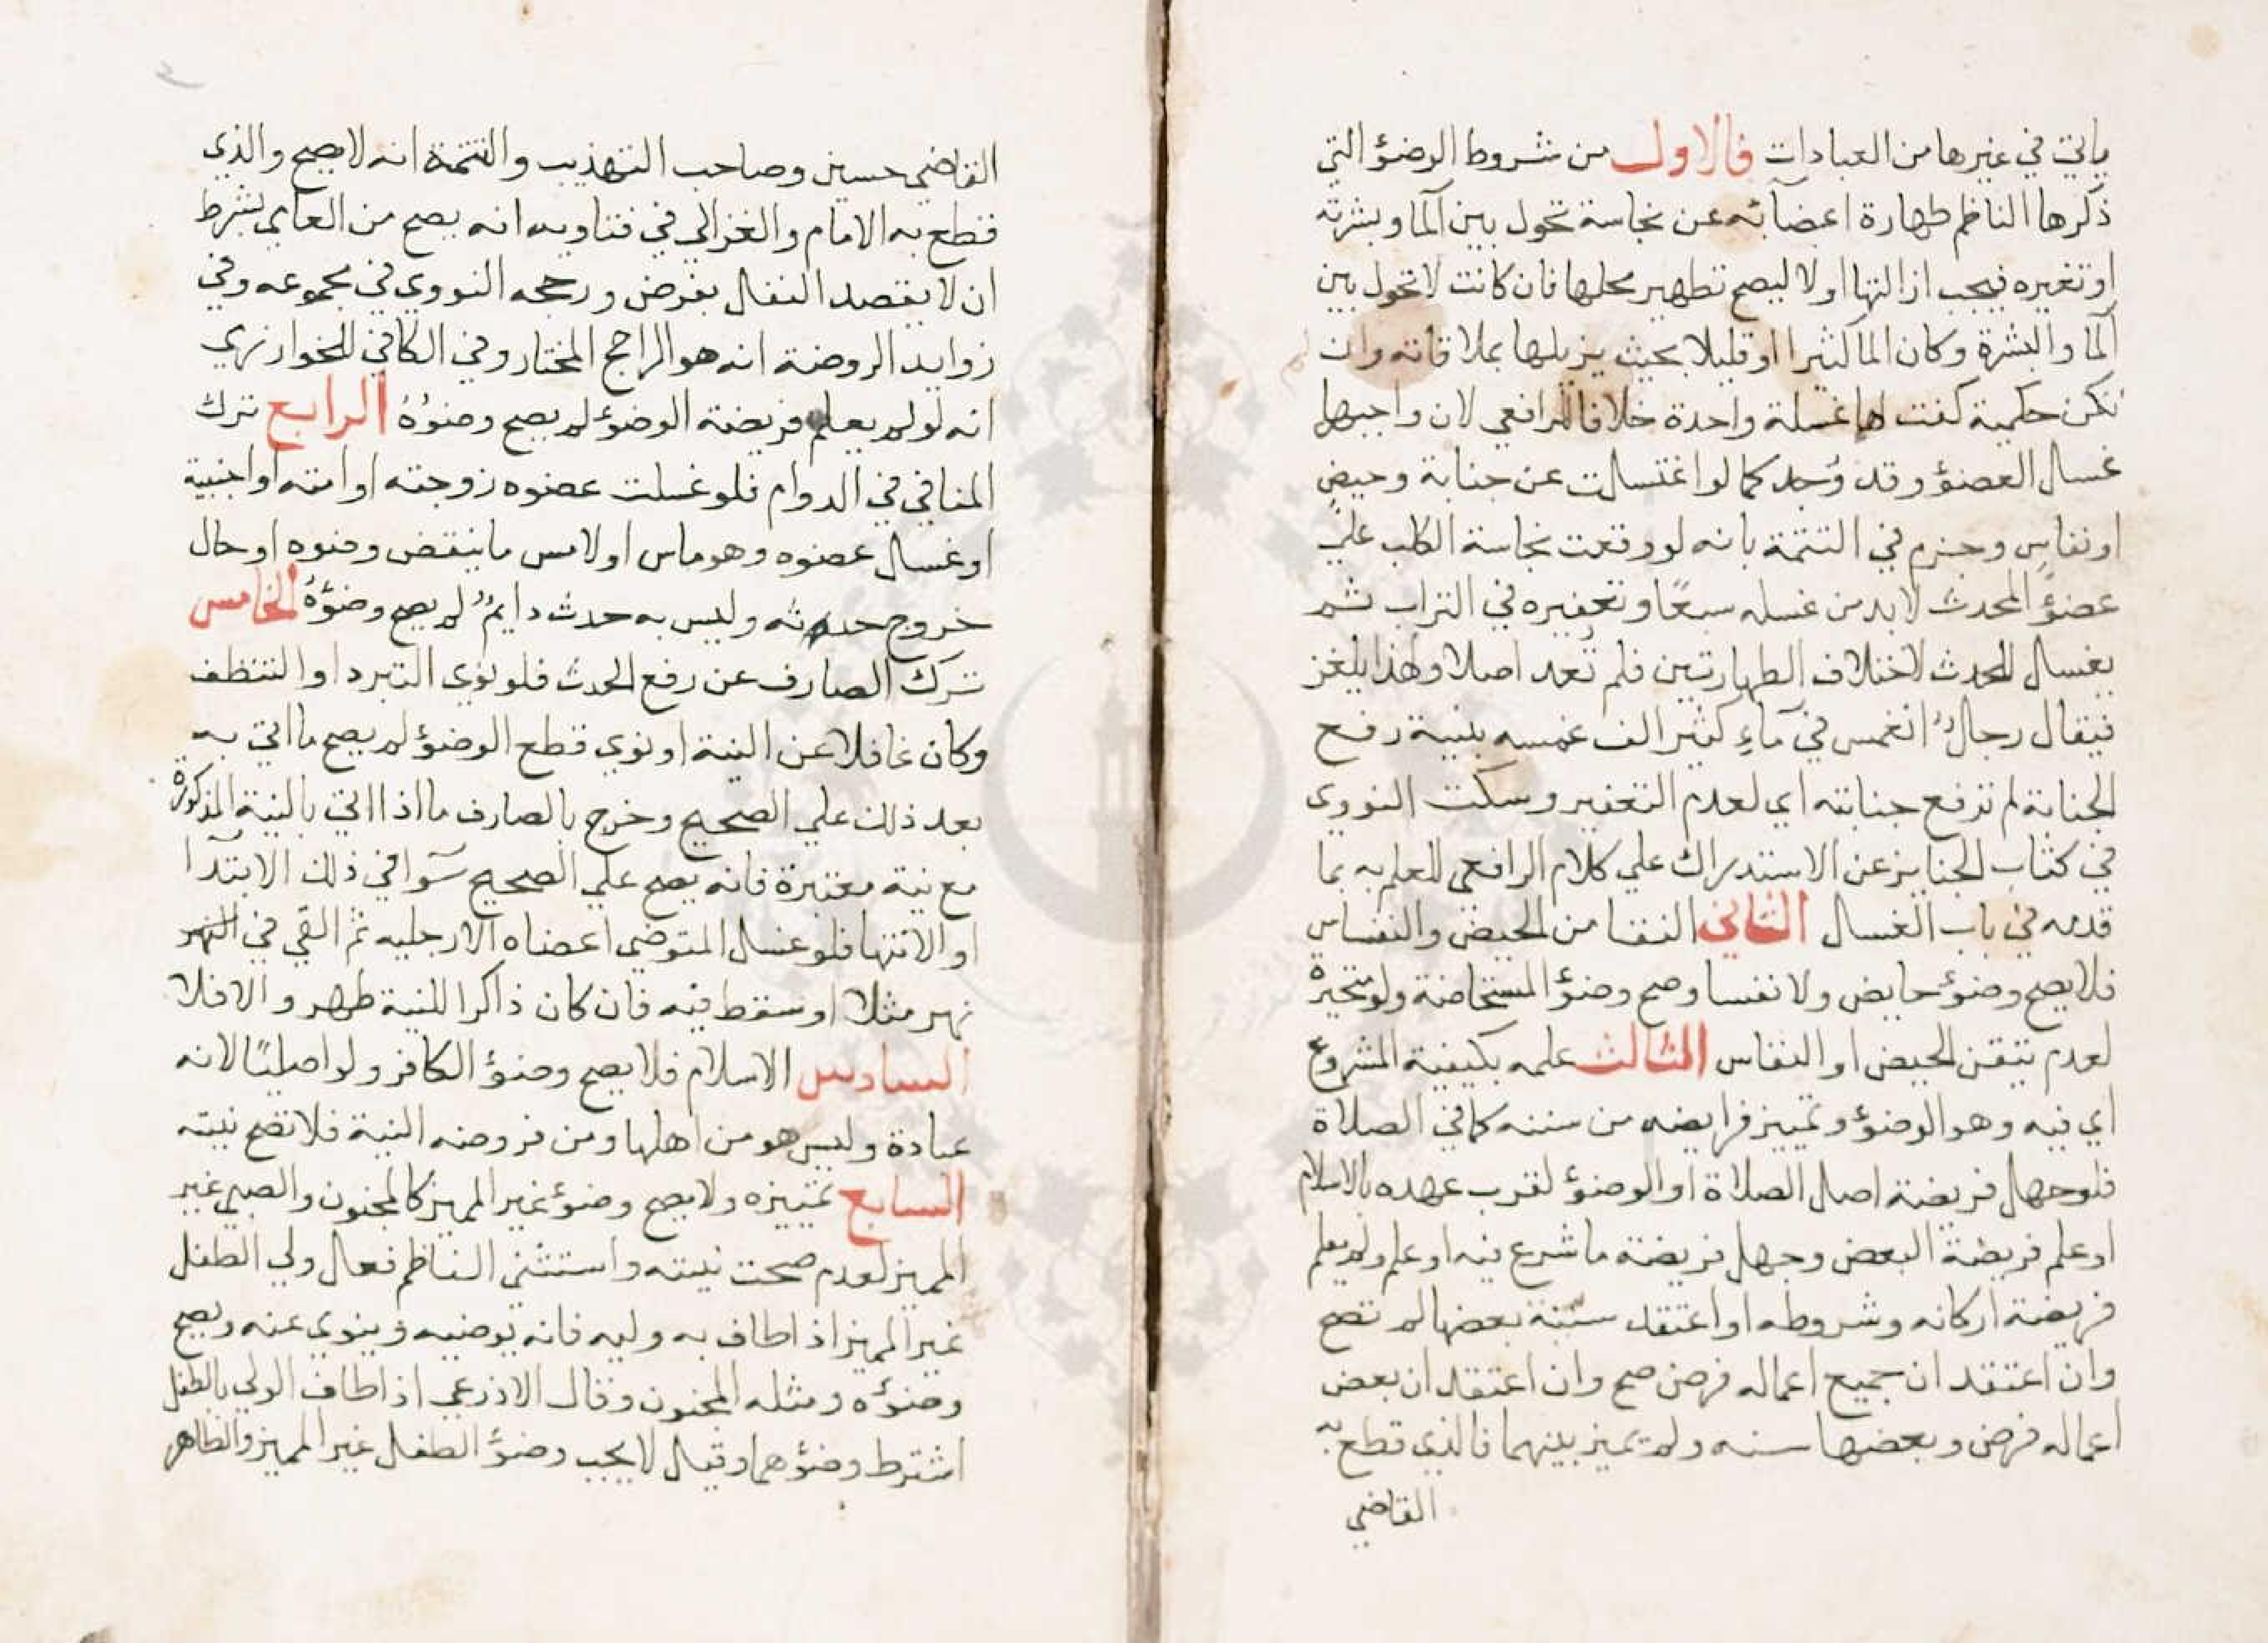 ياتي في غيرها من العبادات فالاول من شروط الوضؤ التي
ذكرها الناظم طهارة اعضآئه عن نجاسة تحول بين آلما وبشرته
او تغيره فيجب ازالتها اولا ليصح تطهير محلها فان كانت لا تحول بين
آلما والبشرة وكان الما كثيرا او قليلا بحيث يزيلها بملاقاته وان
تكن حكمية كفت لها غسلة واحدة خلافا للرافعي لان واجبهما
غسل العضؤ وقد وُجد كما لو اغتسلت عن جنابة وحيض
او نفاس وجزم في التتمة بانه لو وقعت نجاسة الكلب علي
عضؤ المحدث لابد من غسله سبعًا وتعفيره في التراب ثم
يغسل للحدث لاختلاف الطهارتين فلم تُعد اصلا ولهذا يلغز
فيقال رجلٌ انغمس في مآءٍ كثير الف غمسه بنية رفع
الجنابة لم ترفع جنابته اي لعدم التعفير وسكت النووي
في كتاب الجنايز عن الاستدراك علي كلام الرافعي للعلم به بما
قدمه في باب الغسل الثاني النقا من الحيض والنفاس
فلا يصح وضؤ حايض ولا نفسا وصح وضؤ المستحاضة ولو متحيرة
لعدم تيقن الحيض او النفاس الثالث علمه بكيفية المشروع
اي فيه وهو الوضؤ وتمييز فرايضه من سننه كما في الصلاة
فلو جهل فريضة اصل الصلاة او الوضؤ لقرب عهده بالاسلام
او علم فريضة البعض وجهل فريضة ما شرع فيه او علم ولم يعلم
فريضة اركانه وشروطه او اعتقد سنية بعضها لم تصح
وان اعتقد ان جميع اعماله فرض صح وان اعتقد ان بعض
اعماله فرض وبعضها سنه ولم يميز بينهما فالذي قطع به
القاضي
القاضي حسين وصاحب التهذيب والتتمة انه لا يصح والذي
قطع به الامام والغزالي في فتاويه انه يصح من العامي بشرط
ان لا يقصد النفل بفرض ورجحه النووي في مجموعه وفي
زوايد الروضة انه هو الراجح المختار وفي الكافي للخوارزمي
انه لو لم يعلم فريضة الوضؤ لم يصح وضوُهُ الرابع ترك
المنافي في الدوام فلو غسلت عضوه زوجته او امته او اجنبية
او غسل عضوه وهو ماس او لامس ما ينقض وضوه او حال
خروج حدثه وليس به حدث دايمٌ لم يصح وضؤهُ الخامس
ترك الصارف عن رفع الحدث فلو نوي التبرد او التنظف
وكان غافلا عن النية او نوي قطع الوضؤ لم يصح ما اتي به
بعد ذلك علي الصحيح وخرج بالصارف ما اذا اتي بالنية المذكورة
مع نية معتبرة فانه يصح علي الصحيح سَوا في ذلك الابتدآ
او الانتها فلو غسل المتوضي اعضاه الا رجليه ثم القي في النهر
نهر مثلا او سقط فيه فان كان ذاكرا للنية طهر والا فلا
السادس الاسلام فلا يصح وضؤ الكافر ولو اصليًا لانه
عبادة وليس هو من اهلها ومن فروضه النية فلا تصح نيته
السابع تمييزه ولا يصح وضؤ غير المميز كالمجنون والصبي غير
المميز لعدم صحت نيته واستثني الناظم فعل ولي الطفل
غير المميز اذا طاف به وليه فانه يوضيه وينوي عنه ويصح
وضؤه ومثله المجنون وقال الاذرعي اذا طاف الولي بالطفل
اشترط وضؤهما وقيل لا يجب وضؤ الطفل غير المميز والظاهر